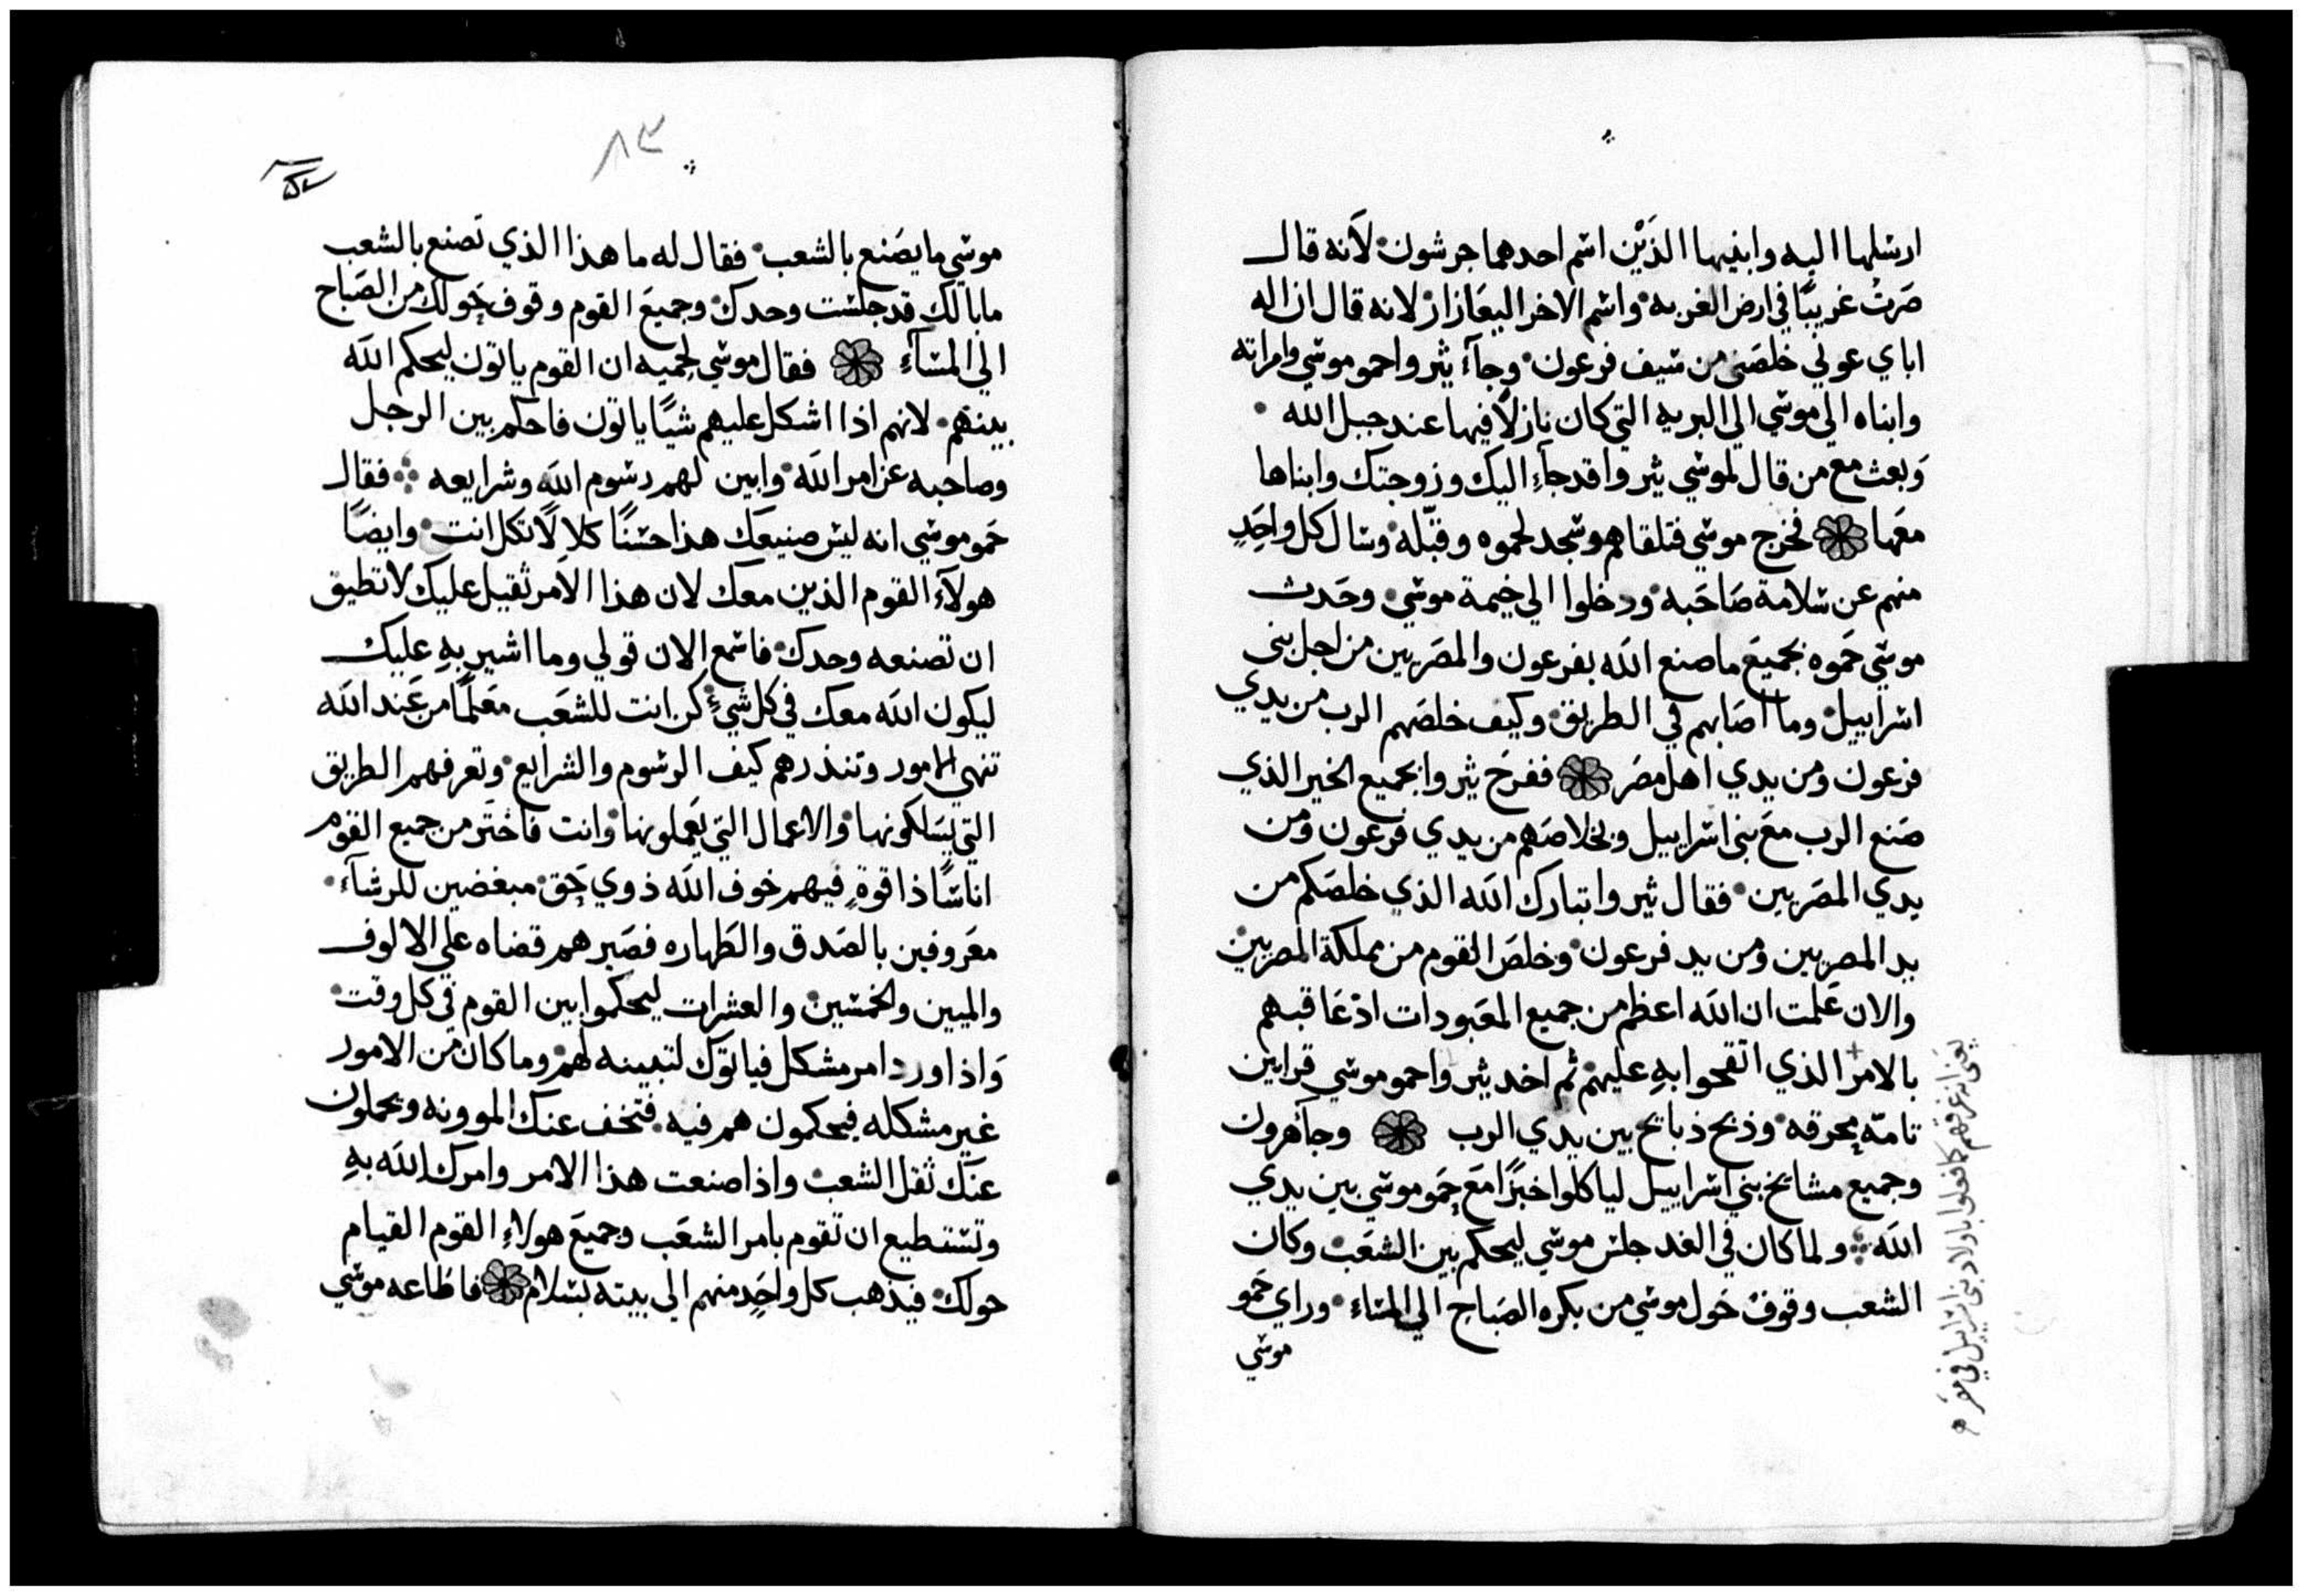 ارسلها اليه وابنيها الذَيْن اسم احدهما جرشون لأنه قال
صَرتُ غريبًا في ارض الغربه واسم الاخر اليعَازار لانه قال ان اله
اباي عوني خلصَني من سيف فرعون وجآء يثروا حمو موسي وامراته
وابناه الي موسي الي البريه التي كان نازلًا فيها عند جبل الله
وَبعث مع من قال لموسي يثروا قد جاء اليك وزوجتك وابناها
معَها فخرج موسي فتلقاهم وسجد لحموه وقبّله وسال كل واحَدٍ
منهم عن سلامة صَاحَبه ودخلوا الي خيمة موسي وحَدث
موسي حَموه بجميعَ ما صنع الله بفرعون والمصَريين من اجل بني
اسراييل وما اصَابهم في الطريق وكيف خلصَهم الرب من يدي
فرعون ومن يدي اهل مصَر ففرحَ يثروا بجميع الخير الذي
صَنع الرب معَ بني اسراييل وبخلاصَهم من يدي فرعون ومن
يدي المصَريين فقال يثروا تبارك الله الذي خلصَكم من
يد المصريين ومن يد فرعون وخلصَ القوم من مملكة المصريين
والان عَلمت ان الله اعظم من جميع المعَبودات اذ عَاقبهم
بالامر الذي اتقحوا بهِ عليهم ثم اخد يثروا حمو موسي قرابين
تامّه محرقه وذبح ذبايح بين يدي الرب وجآ هرون
وجميع مشايخ بني اسراييل لياكلوا خبزًا معَ حَمو موسي بين يدي
الله ولما كان في الغد جلس موسي ليحكم بين الشعَب وكان
الشعب وقوفٌ حَول موسي من بكره الصَباح الي المساء وراي حَمو
موسي
يعَني انه غرقهم كما فعلوا باولاد بني اسراييل في مصَر
٨٣
موسي ما يصَنع بالشعب فقال له ما هذا الذي تَصنع بالشعب
ما بالك قد جلست وحدك وجميعَ القوم وقوف حَولك من الصَباح
الي المسآء فقال موسي لحَميه ان القوم ياتون ليحكم الله
بينهم لانهم اذا اشكل عليهم شيًا ياتون فاحكم بين الرجل
وصاحبه عن امر الله وابين لهم رسوم الله وشرايعه فقال
حَمو موسي انه ليس صنيعك هذا حسنًا كلالًا تكل انت وايضًا
هولآء القوم الذين معك لان هذا الامر ثقيل عليك لا تطيق
ان تصنعه وحدك فاسمع الان قولي وما اشير بهِ عليك
ليكون الله معك في كل شيءٍ كن انت للشعَب معَلمًا من عَند الله
تنهي الامور وتنذرهم كيف الرسوم والشرايع وتعرفهم الطريق
التي يسَلكونها والاعمال التي يعَملونها وانت فاختَر من جميع القوم
اناسًا ذا قوةٍ فيهم خوف الله ذوي حَق مبغضين للرشآء
معَروفين بالصَدق والطَهاره فصَيرهم قضاه علي الالوف
والميين والخمسين والعشرات ليحكموا بين القوم في كل وقت
وَاذا ورد امر مشكل فياتوك لتبينه لهم وما كان من الامور
غير مشكله فيحكمون هم فيه فتخف عنك الموونه ويحملون
عنك ثقل الشعب واذا صنعت هذا الامر وامرك الله بهِ
وتستطيع ان تقوم بامر الشعَب وجميعَ هولاءِ القوم القيام
حولك فيذهب كل واحَد منهم الي بيته بسلام فاطاعه موسي